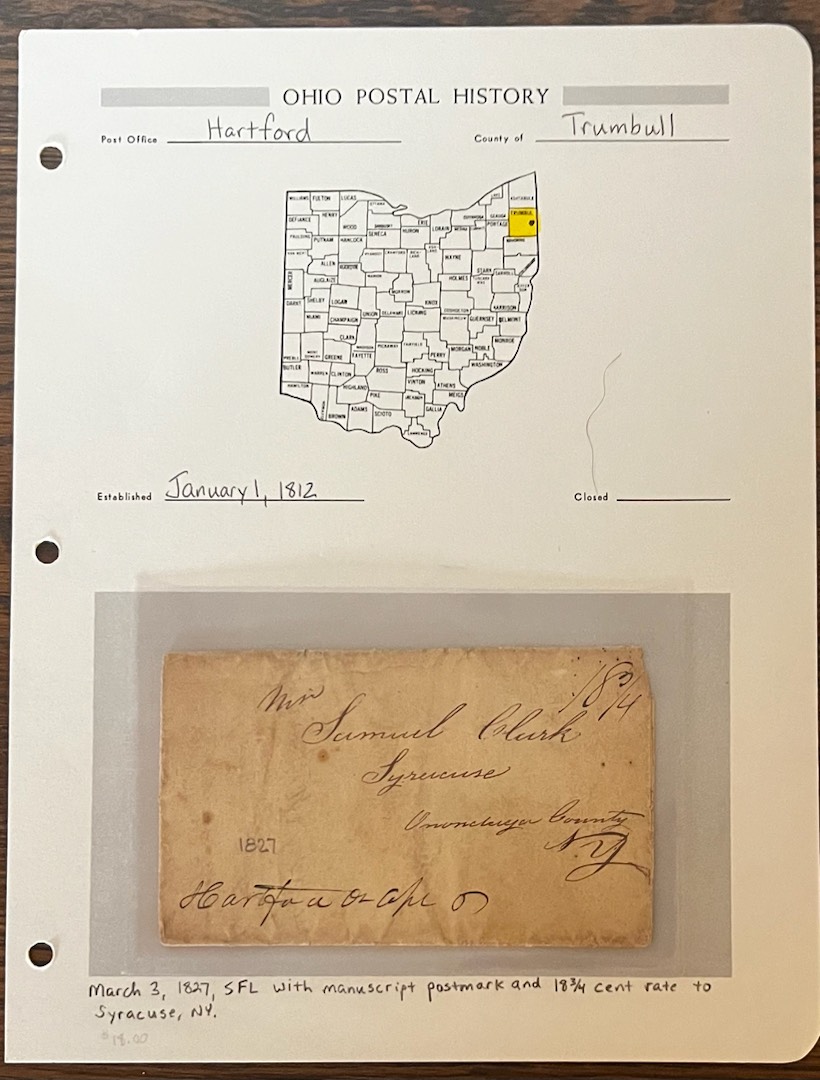 OHIO POSTAL HISTORY
Post Office Hartford County of Trumbull
WILLIAMS FULTON LUCAS OTTAWA LAKE ASHTABULA
DEFIANCE HENRY WOOD SANDUSKY ERIE LORAIN CUYAHOGA GEAUGA TRUMBULL
PAULDING PUTNAM HANCOCK SENECA HURON MEDINA PORTAGE
ALLEN WAYNE STARK
MERCER AUGLAIZE HARDIN MARION MORROW HOLMES CARROLL
DARKE SHELBY LOGAN UNION DELAWARE KNOX HARRISON
MIAMI CHAMPAIGN LICKING GUERNSEY BELMONT
CLARK
PREBLE GREENE FAYETTE PICKAWAY FAIRFIELD PERRY MORGAN NOBLE MONROE
BUTLER WARREN CLINTON ROSS HOCKING WASHINGTON
HAMILTON HIGHLAND PIKE VINTON ATHENS MEIGS
BROWN ADAMS SCIOTO JACKSON GALLIA
LAWRENCE
Established January 1, 1812 Closed
18 3/4
Samuel Clark
Syracuse
Onondaga County
N.Y
1827
Hartford
March 3, 1827, SFL with manuscript postmark and 18¾ cent rate to
Syracuse, NY.
$18.00